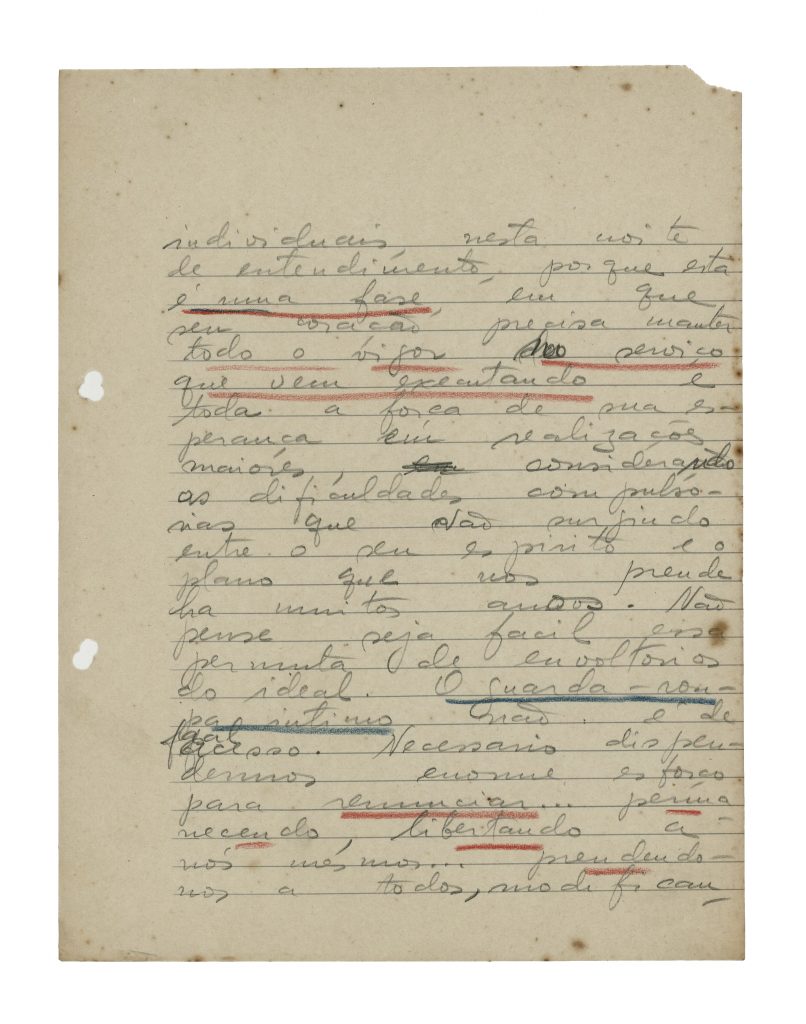 individuais, nesta noite
de entendimento, porque esta
é uma fase, em que
seu coração precisa manter
todo o vigor no serviço
que vem executando e
toda a força de sua es-
perança em realizações
maiores, considerando
as dificuldades compulsó-
rias que vão surgindo
entre o seu espirito e o
plano que nos prende
ha muitos anos. Não
pense seja facil essa
permuta de envoltorios
do ideal. O guarda-rou-
pa intimo não é de
facil acesso. Necessario dispen-
dermos enorme esforço
para renunciar... perma
necendo, libertando a
nós mesmos... prendendo-
nos a todos, modifican_